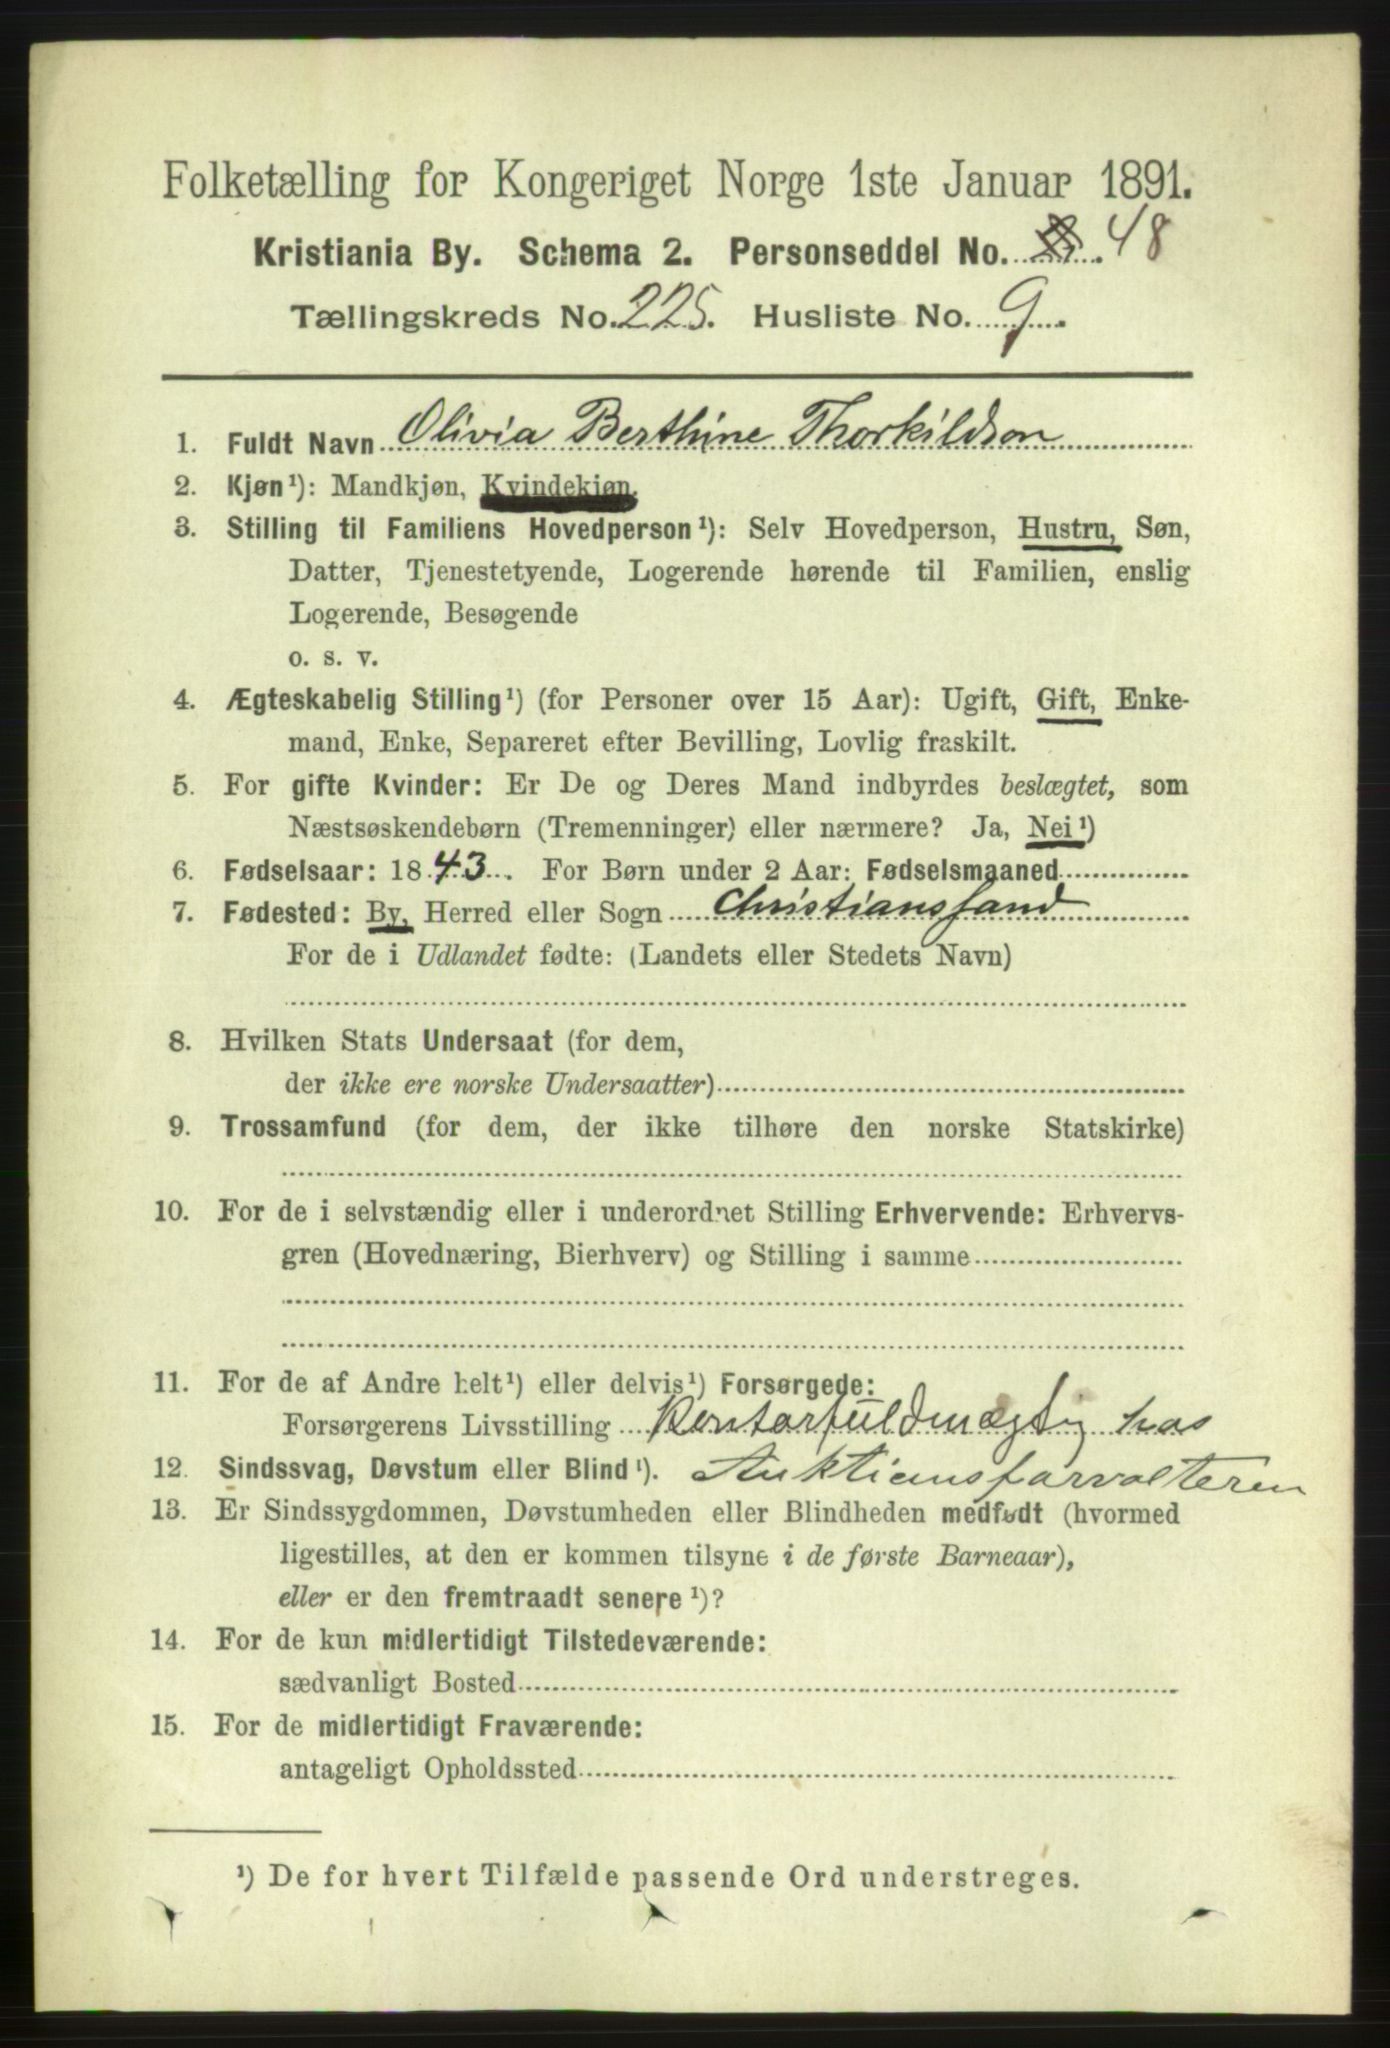 Folketælling for Kongeriget Norge 1ste Januar 1891.
Kristiania By. Schema 2. Personseddel No. 48
Tællingskreds No. 225. Husliste No. 9.
1. Fuldt Navn Olivia Berthine Thorkildson
2. Kjøn¹): Mandkjøn, Kvindekjøn.
3. Stilling til Familiens Hovedperson¹): Selv Hovedperson, Hustru, Søn,
Datter, Tjenestetyende, Logerende hørende til Familien, enslig
Logerende, Besøgende
o. s. v.
4. Ægteskabelig Stilling¹) (for Personer over 15 Aar): Ugift, Gift, Enke-
mand, Enke, Separeret efter Bevilling, Lovlig fraskilt.
5. For gifte Kvinder: Er De og Deres Mand indbyrdes beslægtet, som
Næstsøskendebørn (Tremenninger) eller nærmere? Ja, Nei¹)
6. Fødselsaar: 1843. For Børn under 2 Aar: Fødselsmaaned
7. Fødested: By, Herred eller Sogn Christianssand
For de i Udlandet fødte: (Landets eller Stedets Navn)
8. Hvilken Stats Undersaat (for dem,
der ikke ere norske Undersaatter)
9. Trossamfund (for dem, der ikke tilhøre den norske Statskirke)
10. For de i selvstændig eller i underordnet Stilling Erhvervende: Erhvervs-
gren (Hovednæring, Bierhverv) og Stilling i samme
11. For de af Andre helt¹) eller delvis¹) Forsørgede:
Forsørgerens Livsstilling Kontorfuldmægtig hos
12. Sindssvag, Døvstum eller Blind¹). Auktionsforvalteren
13. Er Sindssygdommen, Døvstumheden eller Blindheden medfødt (hvormed
ligestilles, at den er kommen tilsyne i de første Barneaar),
eller er den fremtraadt senere¹)?
14. For de kun midlertidigt Tilstedeværende:
sædvanligt Bosted
15. For de midlertidigt Fraværende:
antageligt Opholdssted
¹) De for hvert Tilfælde passende Ord understreges.